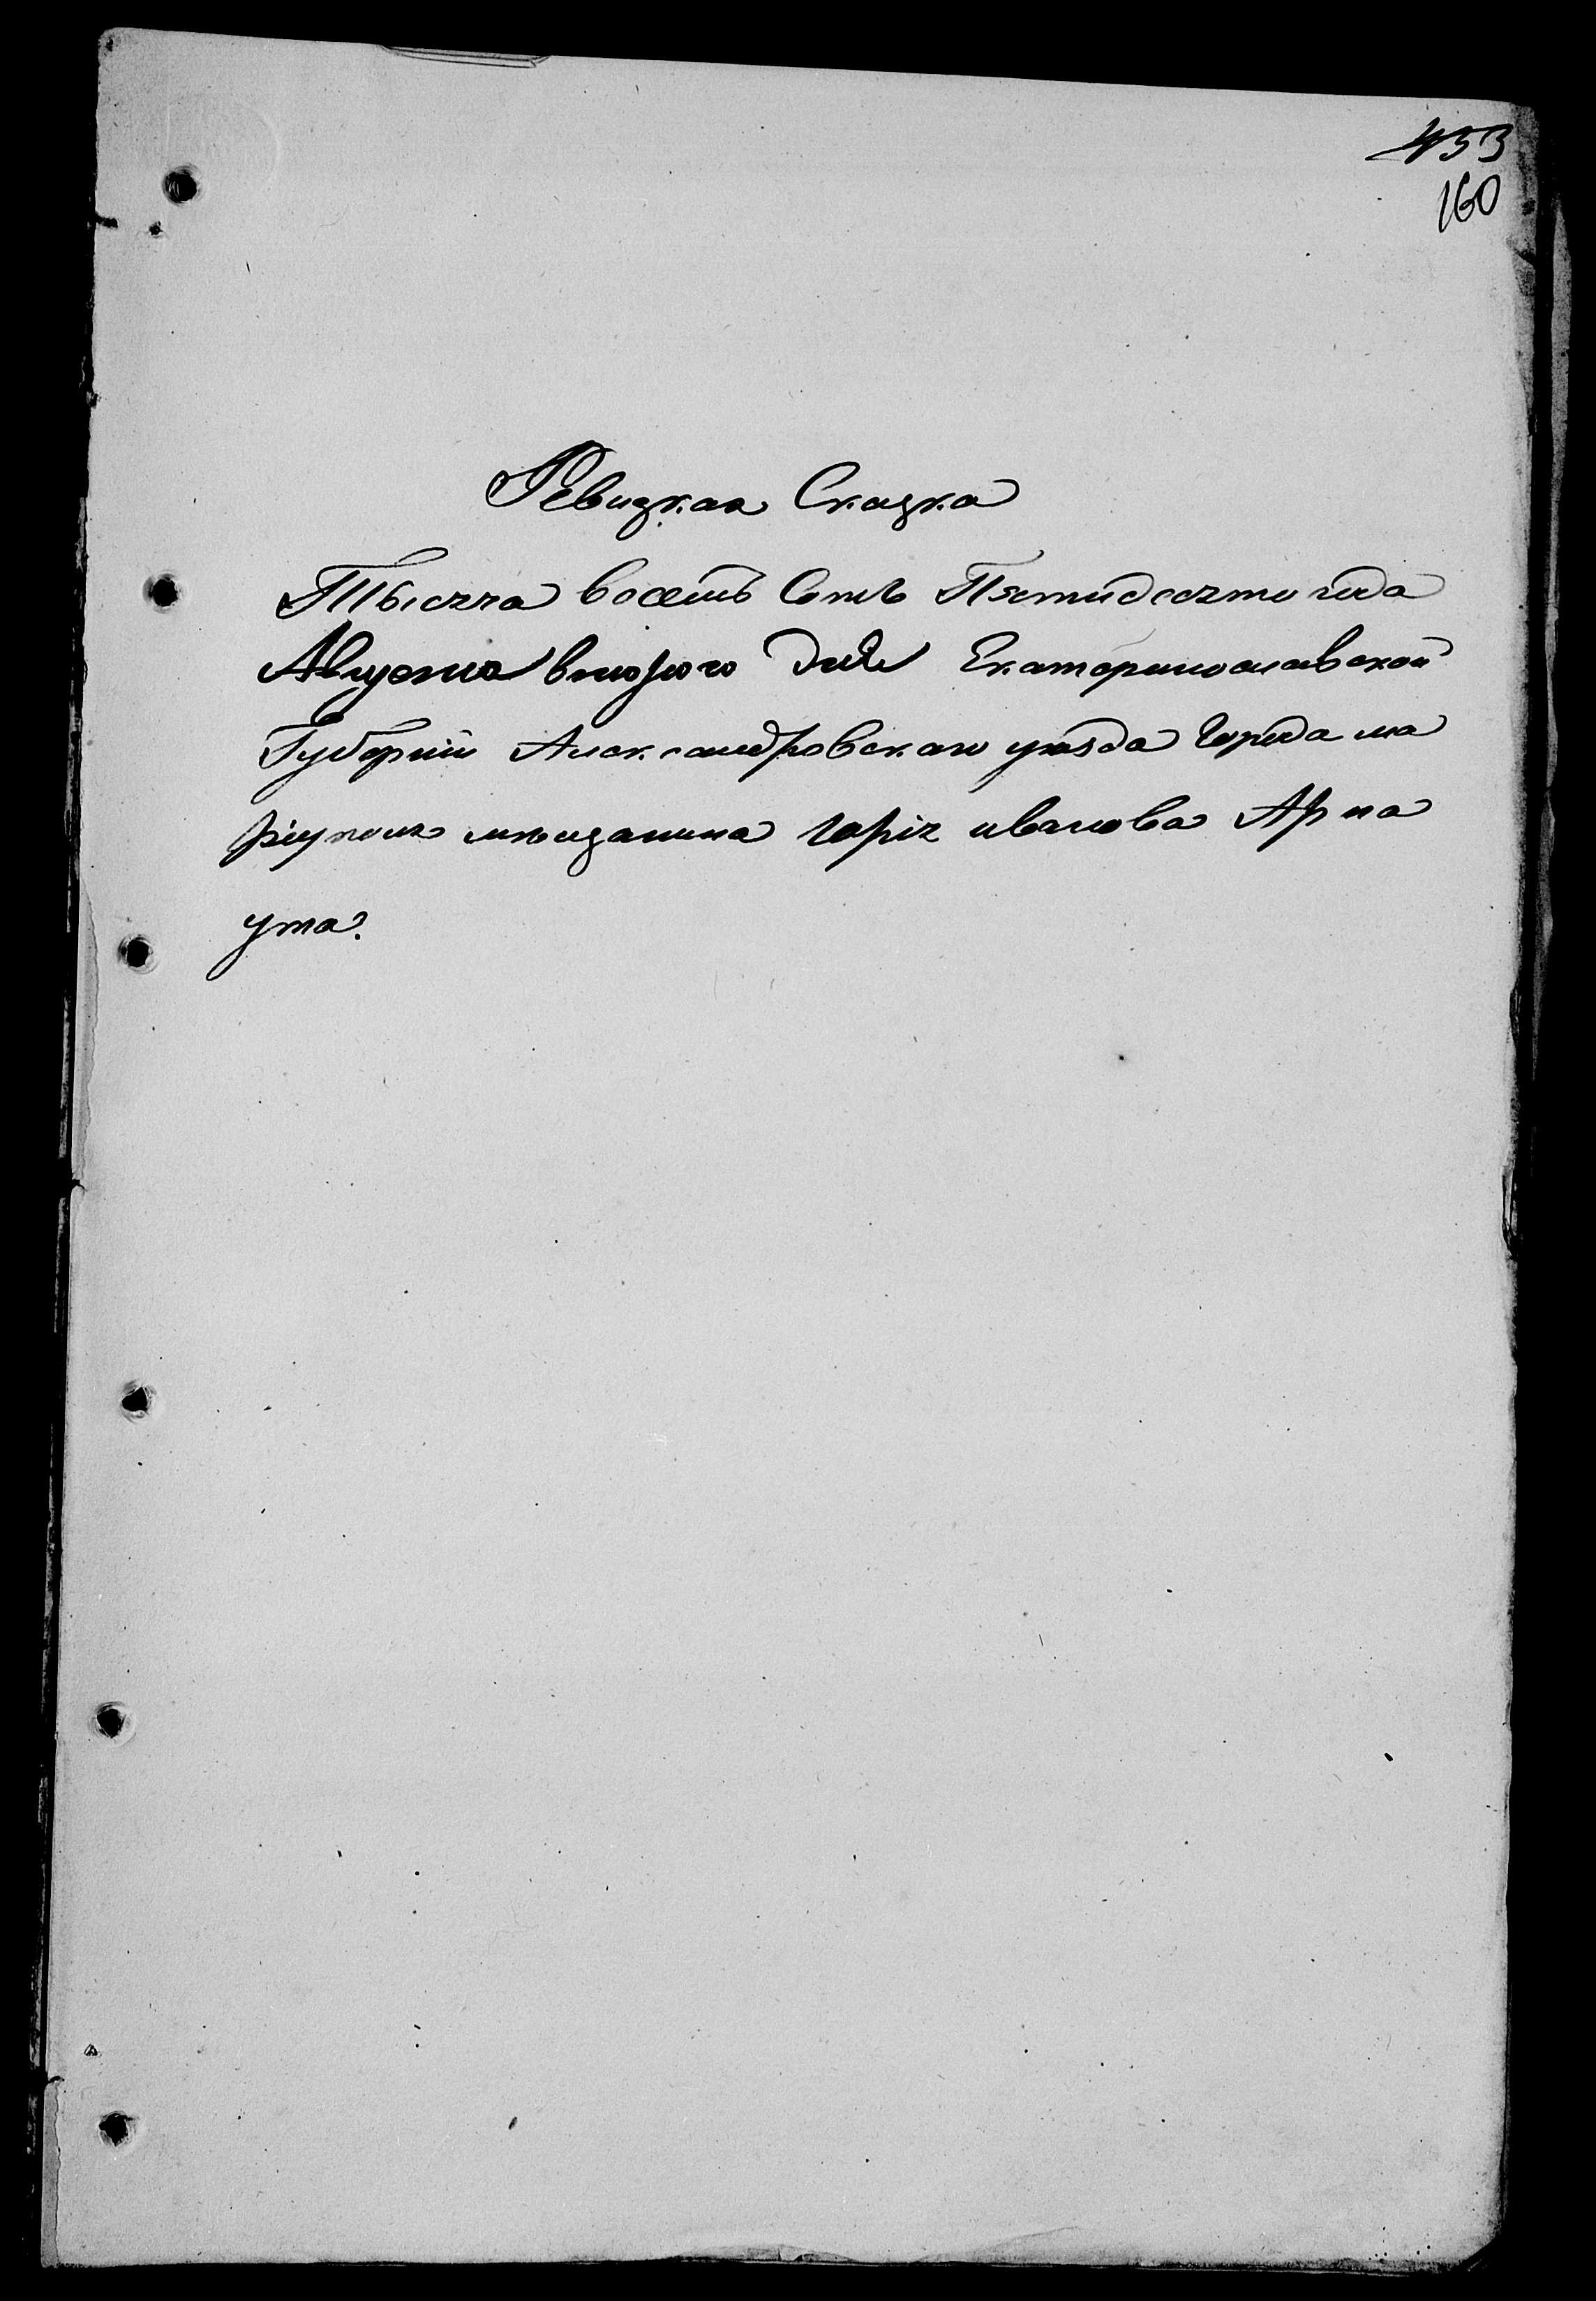 453
160
Ревизкая Сказка
Тысяча восемь Сотъ Пятидесято года
Августа второго дня Екатеринославской
Губерніи Александровскаго уѣзда Города ма
ріуполя мѣщанина Юрія иванова Арна
ута.